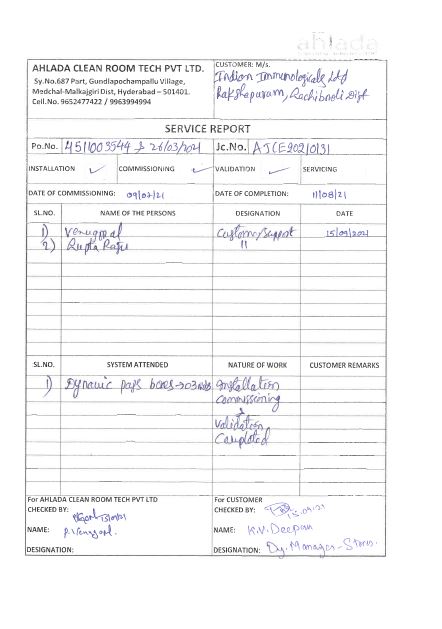 ahlada
AHLADA CLEAN ROOM TECH PVT LTD.
Sy.No.687 Part, Gundlapochampallu Village,
Medchal-Malkajgiri Dist, Hyderabad – 501401.
Cell.No. 9652477422 / 9963994994
CUSTOMER: M/s.
Indian Immunologicals Ltd
Rakshapuram, Gachibowli Dist
SERVICE REPORT
Po.No. 4511003544 & 26/03/2021 Jc.No.
INSTALLATION ✓ COMMISSIONING ✓ VALIDATION ✓ SERVICING
DATE OF COMMISSIONING: DATE OF COMPLETION: 11/08/21
SL.NO. NAME OF THE PERSONS DESIGNATION DATE
1) Venugopal Customer Support 15/09/2021
2) Gupta Raju 11
SL.NO. SYSTEM ATTENDED NATURE OF WORK CUSTOMER REMARKS
1) Dynamic pass boxes → 03 nos Installation
commissioning
&
Validation
Completed
For AHLADA CLEAN ROOM TECH PVT LTD
CHECKED BY:
NAME: P. Venugopal
DESIGNATION:
For CUSTOMER
CHECKED BY: 15.09.21
NAME: K.V. Deepan
DESIGNATION: Dy. Manager - Stores.